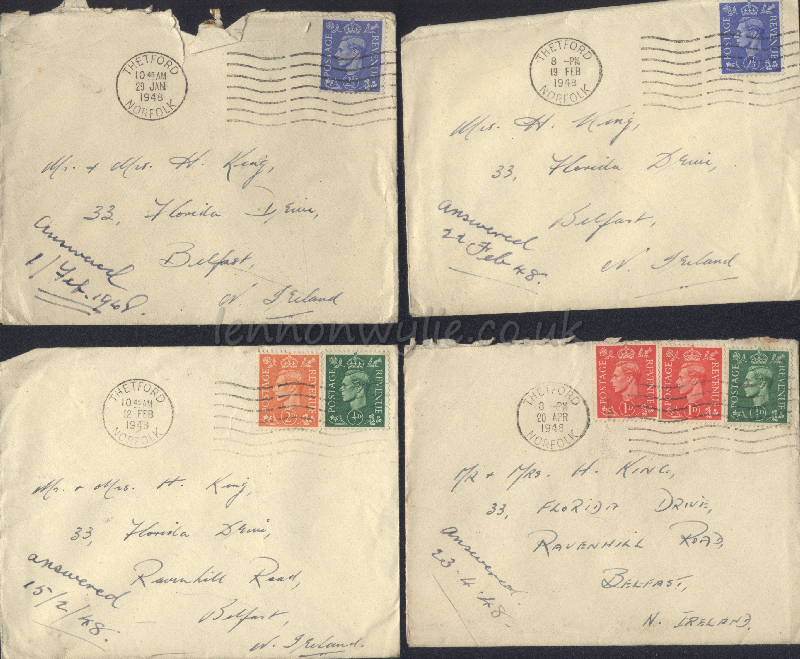 THETFORD
10 45 AM
29 JAN
1948
NORFOLK
POSTAGE
REVENUE
Mr. & Mrs. H. King,
33, Florida Drive,
Belfast,
N. Ireland
answered
1/Feb. 1948.
THETFORD
8 - PM
19 FEB
1948
NORFOLK
POSTAGE
REVENUE
Mrs. H. King,
33, Florida Drive,
Belfast,
N. Ireland
answered
22 Feb 48.
lennonwylie.co.uk
THETFORD
10 45 AM
12 FEB
1948
NORFOLK
POSTAGE 2D REVENUE
POSTAGE ½D REVENUE
Mr. & Mrs. H. King,
33, Florida Drive,
Ravenhill Road,
Belfast,
N. Ireland.
answered
15/2/48.
THETFORD
8 - PM
20 APR
1948
NORFOLK
POSTAGE 1D REVENUE
POSTAGE 1D REVENUE
POSTAGE ½D REVENUE
MR & MRS. H. KING,
33, FLORIDA DRIVE,
RAVENHILL ROAD,
BELFAST,
N. IRELAND.
answered
23.4.48.